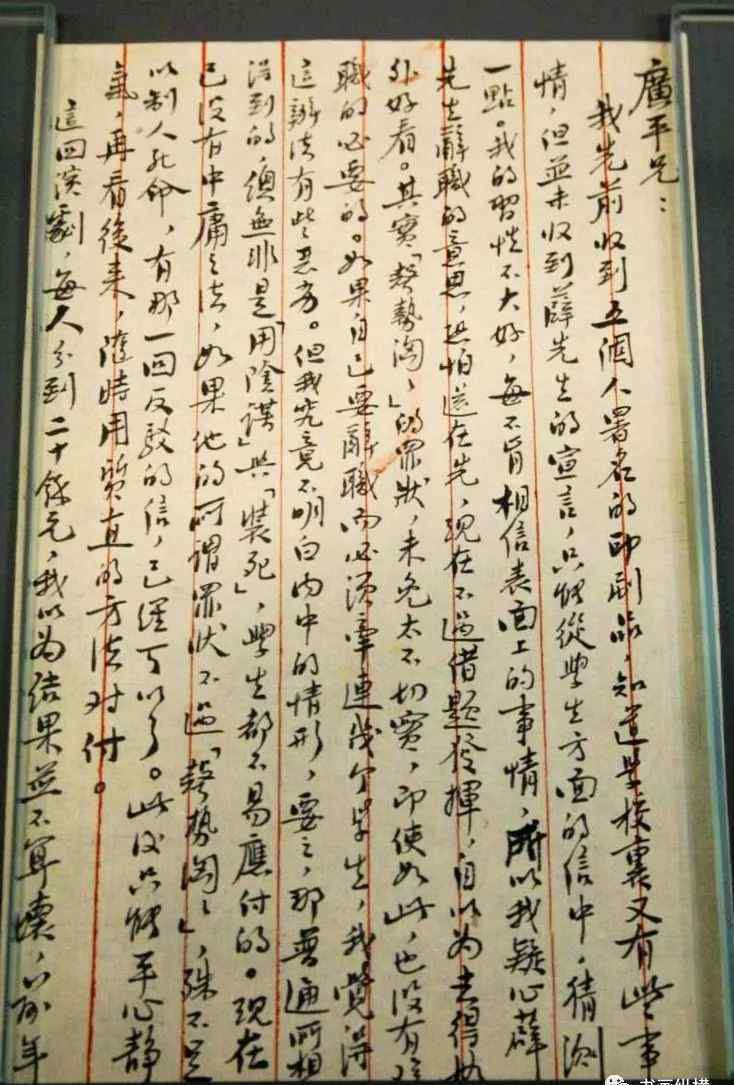 廣平兄：
我先前收到五個人署名的印刷品，知道學校裏又有些事
情，但並未收到薛先生的宣言，只能從學生方面的信中，猜測
一點。我的習性不大好，每不肯相信表面上的事情，所以我疑心薛
先生辭職的意思，恐怕還在先，現在不過借題發揮，自以為去得格
外好看。其實「聲勢洶〻」的罪狀，未免太不切實，即使如此，也沒有辭
職的必要的。如果自己要辭職而必須牽連幾個學生，我覺得
這辦法有些惡劣。但我究竟不明白內中的情形，要之，那普通所想
得到的，總無非是「用陰謀」與「裝死」，學生都不易應付的。現在
已沒有中庸之法，如果他的所謂罪狀不過「聲勢洶〻」，殊不足
以制人死命，有那一回反駁的信，已經可以了。此後只能平心靜
氣，再看後來，隨時用質直的方法對付。
這回演劇，每人分到二十餘元，我以為結果並不算壞，前年
书画纵横